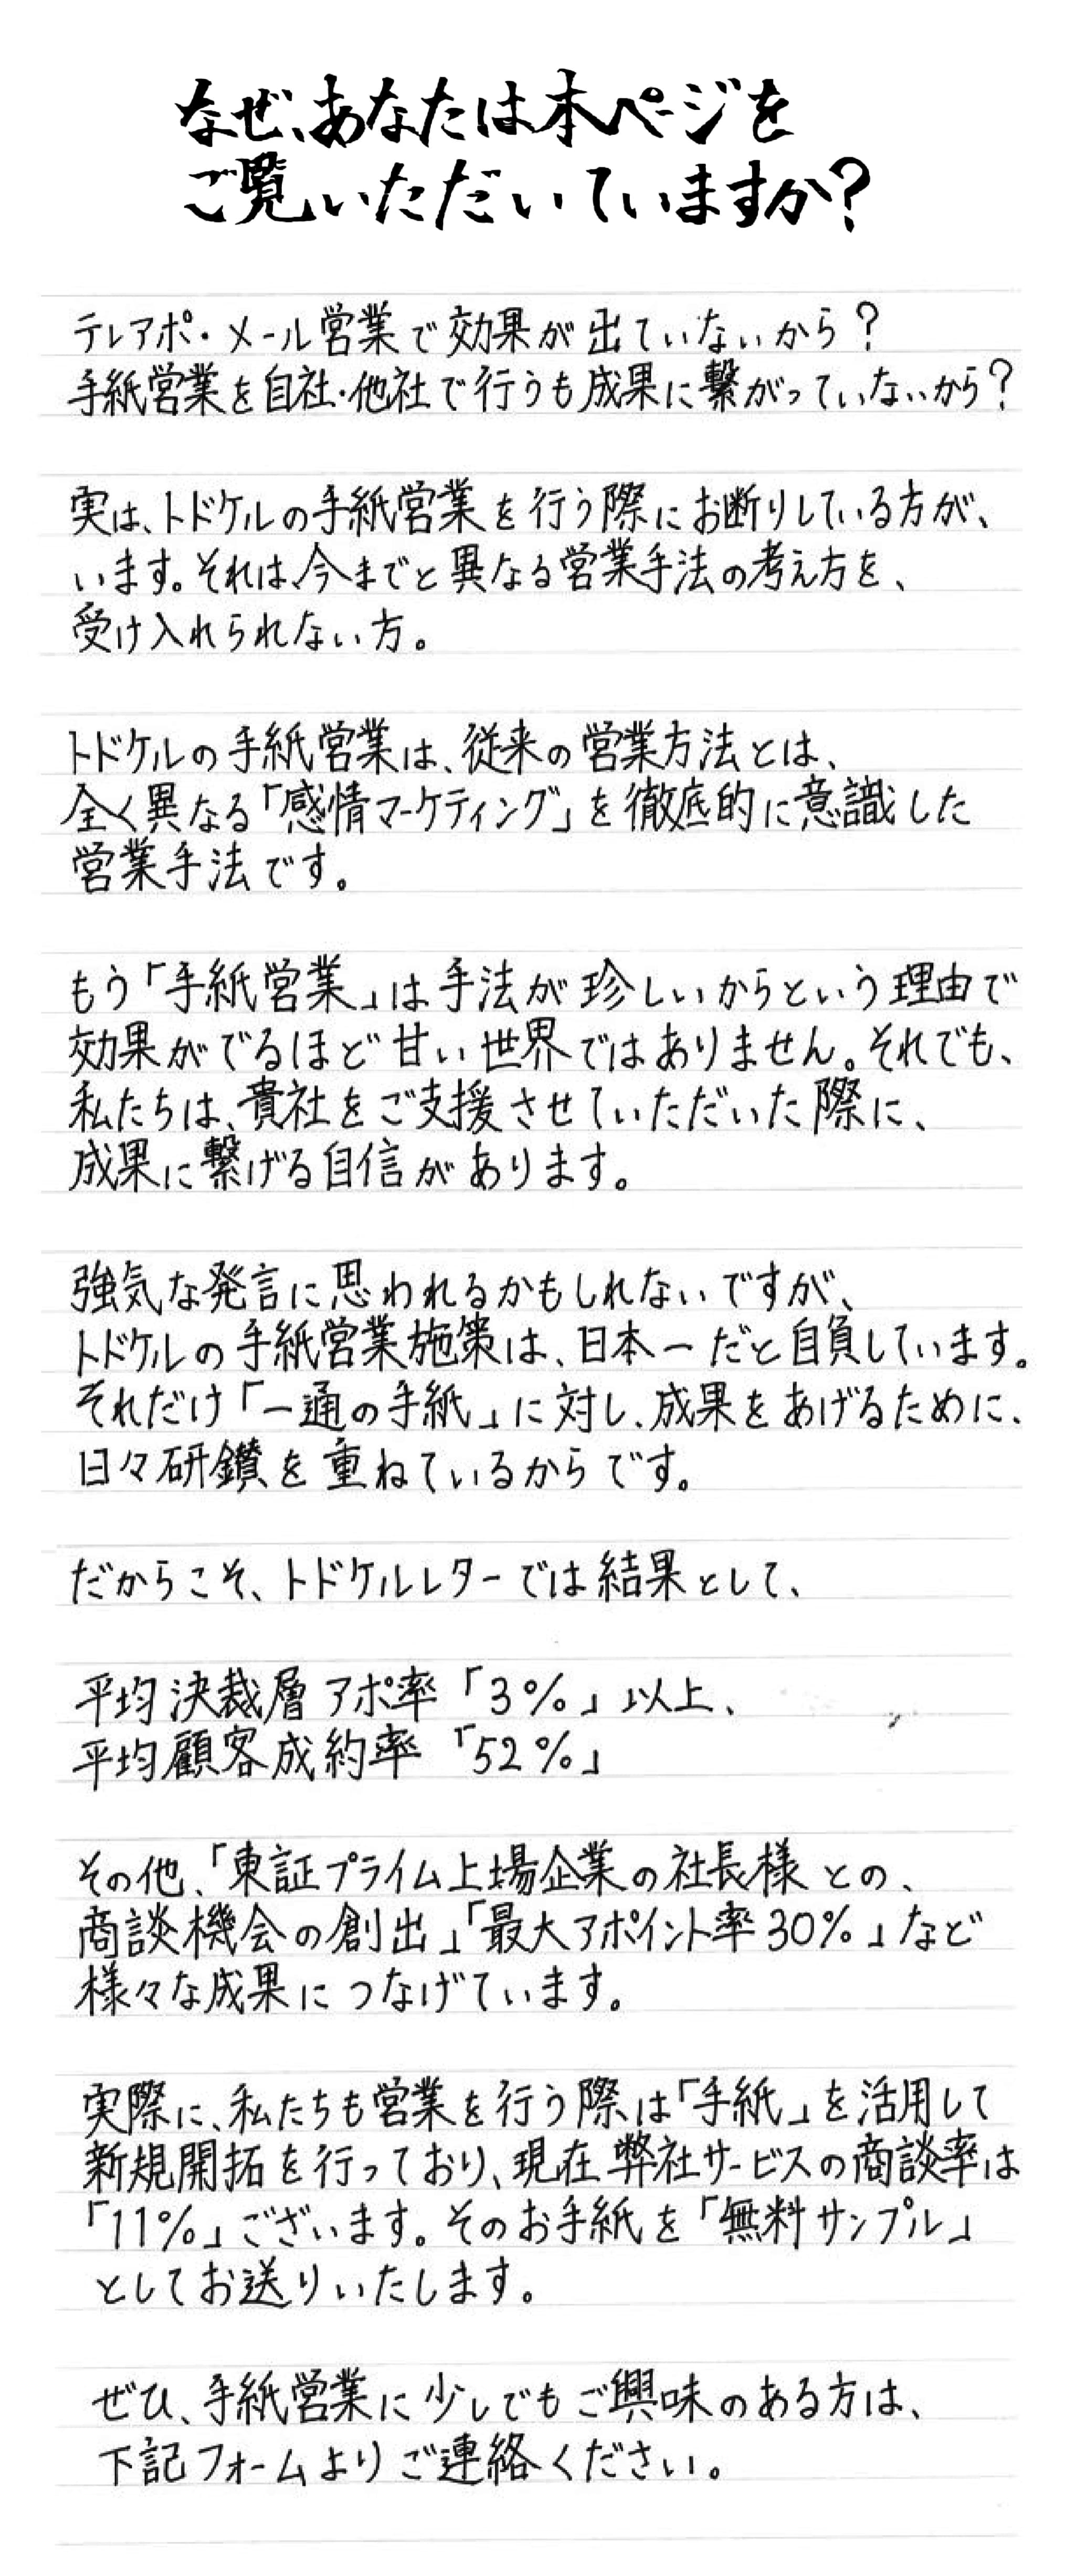 なぜ、あなたは本ページを
ご覧いただいていますか?
テレアポ・メール営業で効果が出ていないから?
手紙営業を自社・他社で行うも成果に繋がっていないから?
実は、トドケルの手紙営業を行う際にお断りしている方が、
います。それは、今までと異なる営業手法の考え方を、
受け入れられない方。
トドケルの手紙営業は、従来の営業方法とは、
全く異なる「感情マーケティング」を徹底的に意識した
営業手法です。
もう「手紙営業」は手法が珍しいからという理由で
効果がでるほど甘い世界ではありません。それでも、
私たちは、貴社をご支援させていただいた際に、
成果に繋げる自信があります。
強気な発言に思われるかもしれないですが、
トドケルの手紙営業施策は、日本一だと自負しています。
それだけ「一通の手紙」に対し、成果をあげるために、
日々研鑚を重ねているからです。
だからこそ、トドケルレターでは結果として、
平均決裁層アポ率「3%」以上、
平均顧客成約率「52%」
その他、「東証プライム上場企業の社長様との、
商談機会の創出」「最大アポイント率30%」など
様々な成果につなげています。
実際に、私たちも営業を行う際は「手紙」を活用して
新規開拓を行っており、現在弊社サービスの商談率は
「11%」ございます。そのお手紙を「無料サンプル」
としてお送りいたします。
ぜひ、手紙営業に少しでもご興味のある方は、
下記フォームよりご連絡ください。